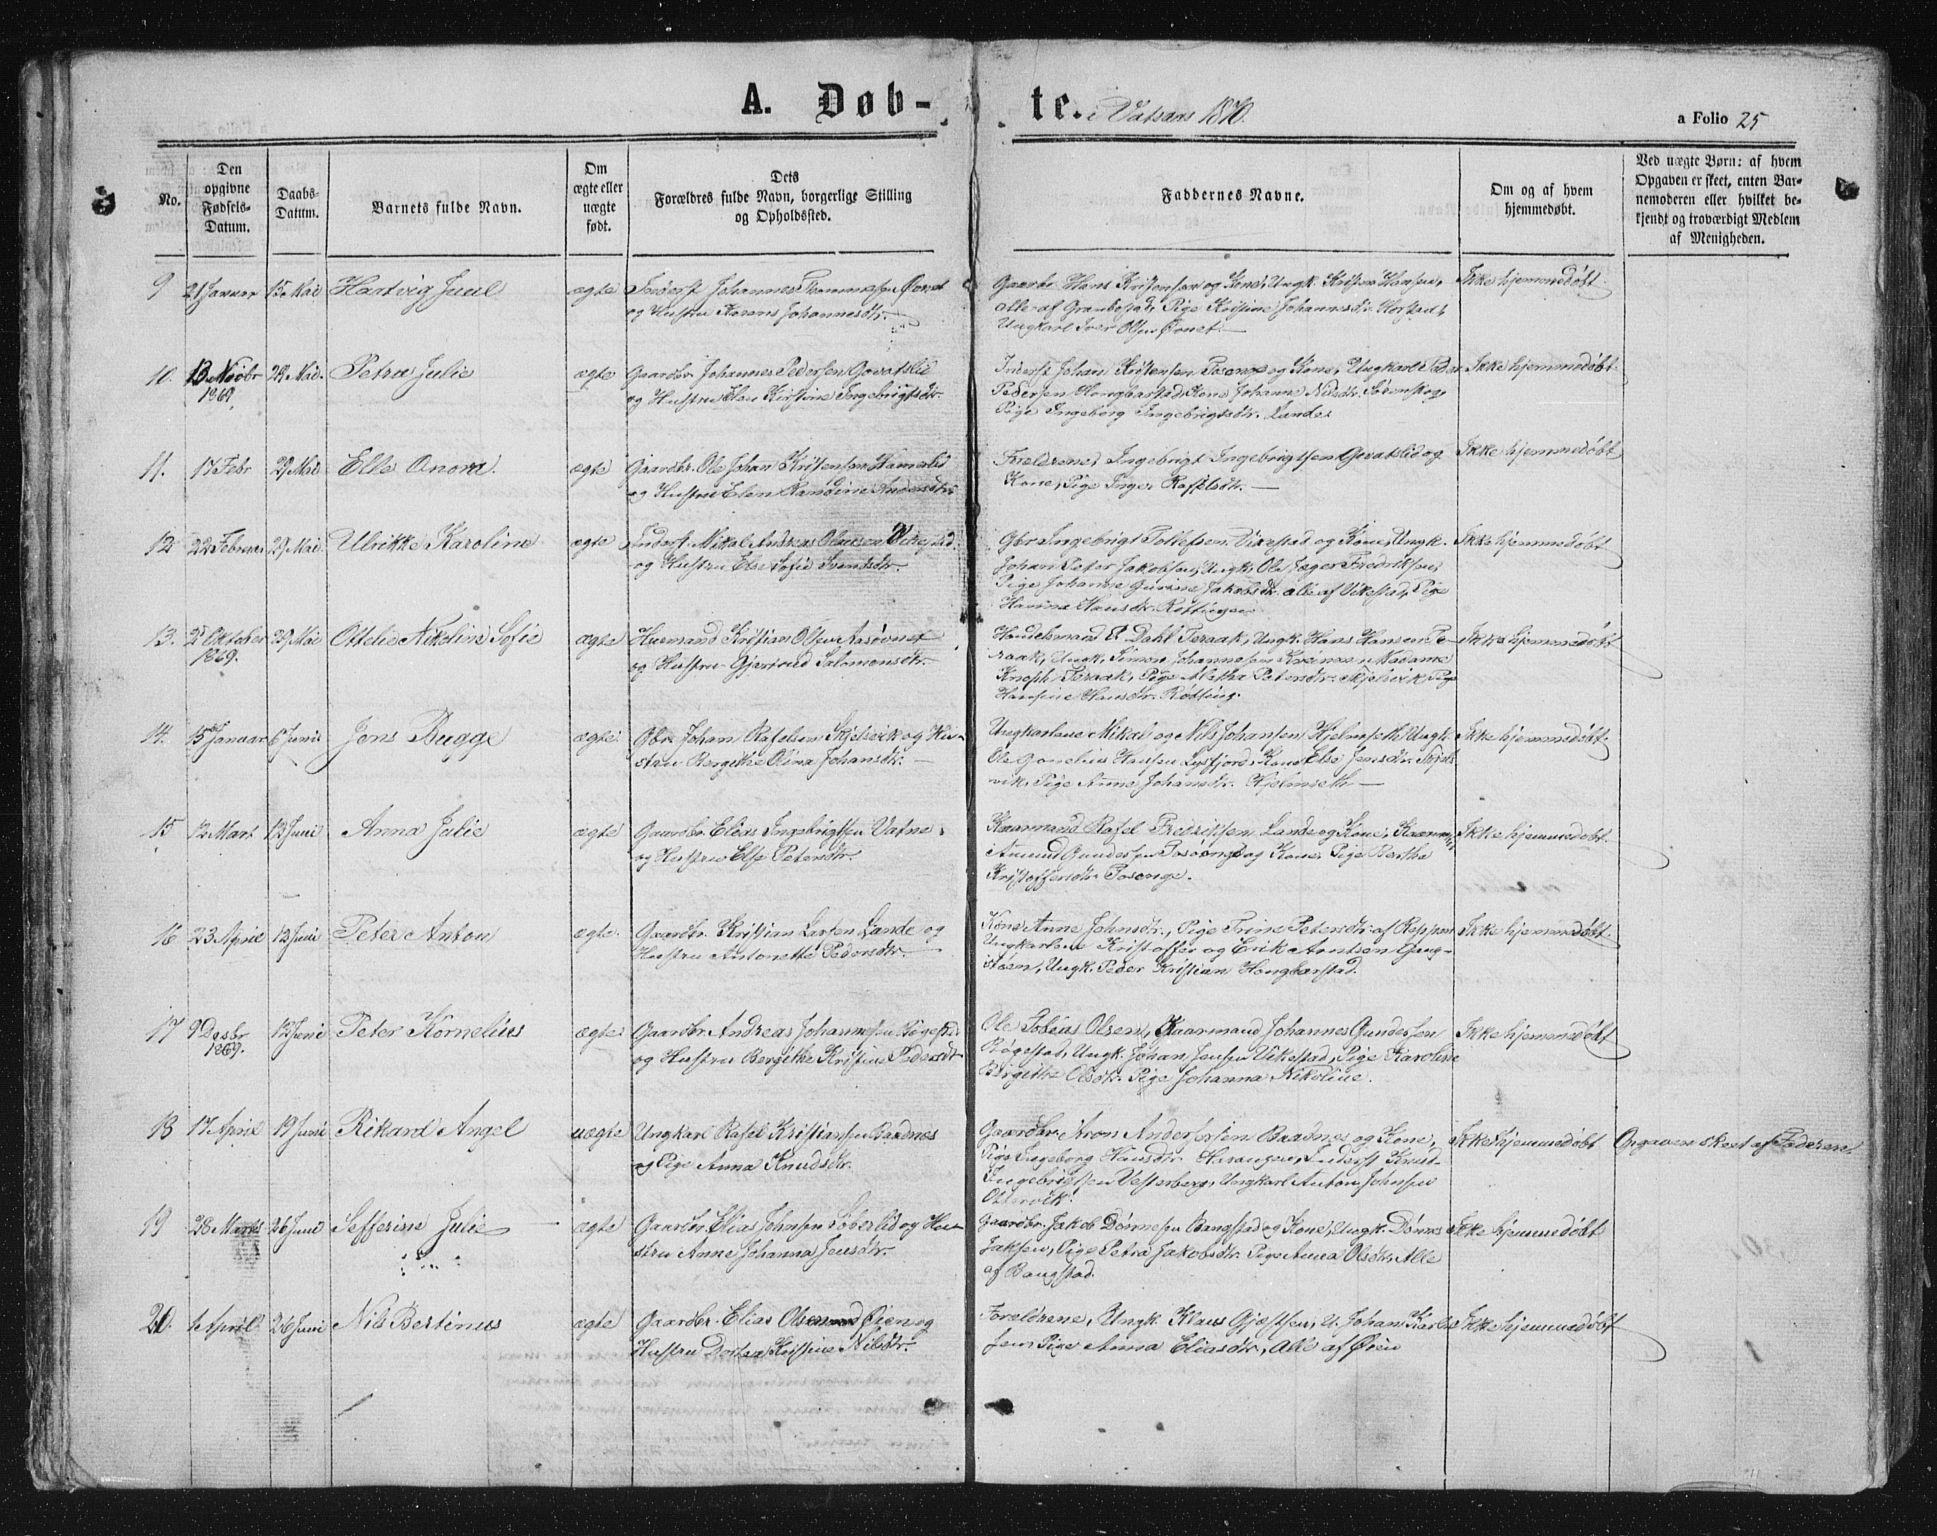 A. Døb- te. i Vatsaas 1870.
a Folio 25
No.
Den opgivne Fødsels-Datum.
Daabs-Datum.
Barnets fulde Navn.
Om ægte eller uægte født.
Dets Forældres fulde Navn, borgerlige Stilling og Opholdssted.
Faddernes Navne.
Om og af hvem hjemmedøbt.
Ved uægte Børn: af hvem Opgaven er skeet, enten Barnemoderen eller hvilket bekjendt og troværdigt Medlem af Menigheden.
9 21 Januar 15 Mai Hartvig Juul ægte Inderst Johannes
og Hustru Karen Johannesdtr.
Gaardbr Hans Kristensen og Kone, Ungk. Kristen Hansen,
alle af Grambostad, Pige Kristine Johannesdtr Horstad,
Ungkarl Iver Olsen Øonet.
Ikke hjemmedøbt
10. 13 Novbr 1869. 29 Mai. Petra Julie ægte Gaardbr. Johannes Pedersen Govatslid
og Hustru Elen Kirstine Ingebrigtsdtr.
Inderst Johan Kristensen og Kone, Ungkarl Peder
Pedersen Hongbarstad, Kone Johanne Nilsdtr.
Pige Ingeborg Ingebrigtsdtr. Lande.
Ikke hjemmedøbt
11. 17 Febr 29 Mai Elle Onora. ægte Gaardbr. Ole Johan Kristensen Hamerlid
og Hustru Elen Randine Andersdtr
Foreldrene, Ingebrigt Ingebrigtsen Govatslid og
Kone, Pige Inger Rafelsdtr.
Ikke hjemmedøbt
12 22 Februar 29 Mai Ulrikke Karoline ægte Inderst Mikal Andreas Olausen
og Hustru Else Sofie Svendsdtr.
Gbr Ingebrigt Tollefsen Vikestad og Kone, Ungk.
Johan Peter Jakobsen, Ungk. Ole Jæger Fredriksen,
Pige Johanne Gurine Jakobsdtr. alle af Vikestad, Pige
Hansine Hansdtr. Røttingen
Ikke hjemmedøbt
13. 25 Oktober 1869. 29 Mai Ottelie Nikoline Sofie ægte Huusmand Kristian Olsen
og Hustru Gjertrud Salomonsdtr.
Handelsmand P. Dahl Teraak, Ungk. Hans Hansen Te-
raak, Ungk. Simon Johannesen, Madame
Knoph Teraak, Pige Aletha Petersdtr. Skjelvik, Pige
Hansine Hansdtr. Røtting.
Ikke hjemmedøbt
14. 15 Januar 6 Juni Jens Bugge ægte Gbr. Johan Rafelsen Skjelvik og Hu-
stru Bergithe Olina Johansdtr.
Ungkarlene Mikael og Nils Johansen Hjelmseth, Ungk
Ole Cornelius Hansen Lysfjord, Kone Else Jensdtr. Skjel-
vik, Pige Anne Johansdtr. Hjelmseth
Ikke hjemmedøbt
15 12 Mart 12 Juni Anna Julie ægte Gaardbr. Elias Ingebrigtsen Vatne
og Hustru Else Petersdtr.
Kaarmand Rafel Fredriksen Lande og Kone, Kaarmd
Amund Gundersen og Kone, Pige Bertha
Kristoffersdtr
Ikke hjemmedøbt.
16 23 April 12 Juni Peter Anton ægte Gaardbr. Kristian Larsen Lande og
Hustru Antonette Pedersdtr.
Kone Anne Johnsdtr., Pige Trine Petersdtr. af Reppen
Ungkarlene Kristoffer og Erik Arntsen Gang-
støen, Ungk. Peder Kristian Hongbarstad.
Ikke hjemmedøbt
17 9 Desbr 1869. 12 Juni Peter Kornelius ægte Gaardbr. Andreas Johannesen Bøgestad
og Hustru Bergithe Kristine Pedersdtr
Ole Tobius Olsen, Kaarmand Johannes Gundersen
Bøgestad, Ungk. Johan Jensen Vikestad, Pige Karoline
Birgithe Olsdtr. Pige Johanna Nikoline.
Ikke hjemmedøbt
18 17 April 19 Juni Rikard Angel uægte Ungkarl Rafel Kristiansen Baadnes
og Pige Anna Knudsdtr.
Gaardbr. Aron Andersortsen Baadnes og Kone,
Pige Ingeborg Hansdtr. Inderst Knud
Ingebrigtsen Vesterberg, Ungkarl Anton Johnsen
Ottervik.
Ikke hjemmedøbt Opgaven skeet af Faderen
19 28 Marts 26 Juni Sefferine Julie ægte Gaardbr. Elias Johnsen Løberlid og Hu-
stru Anne Johanna Jensdtr.
Gaardbr. Jakob Dønnesen Bangstad og Kone, Ungk. Dønnes
Jakobsen, Pige Petra Jakobsdtr. Pige Anna Olsdtr, Alle
af Bangstad.
Ikke hjemmedøbt
20. 1 April 26 Juni Nils Bertinus ægte Gaardbr. Elias Olsen Øien og
Hustru Dortea Kristine Nilsdtr.
Foreldrene, Ungk. Klaus Gjæstsen, U. Johan Karl-
sen Pige Anna Eliasdtr, Alle af Øien
Ikke hjemmedøbt